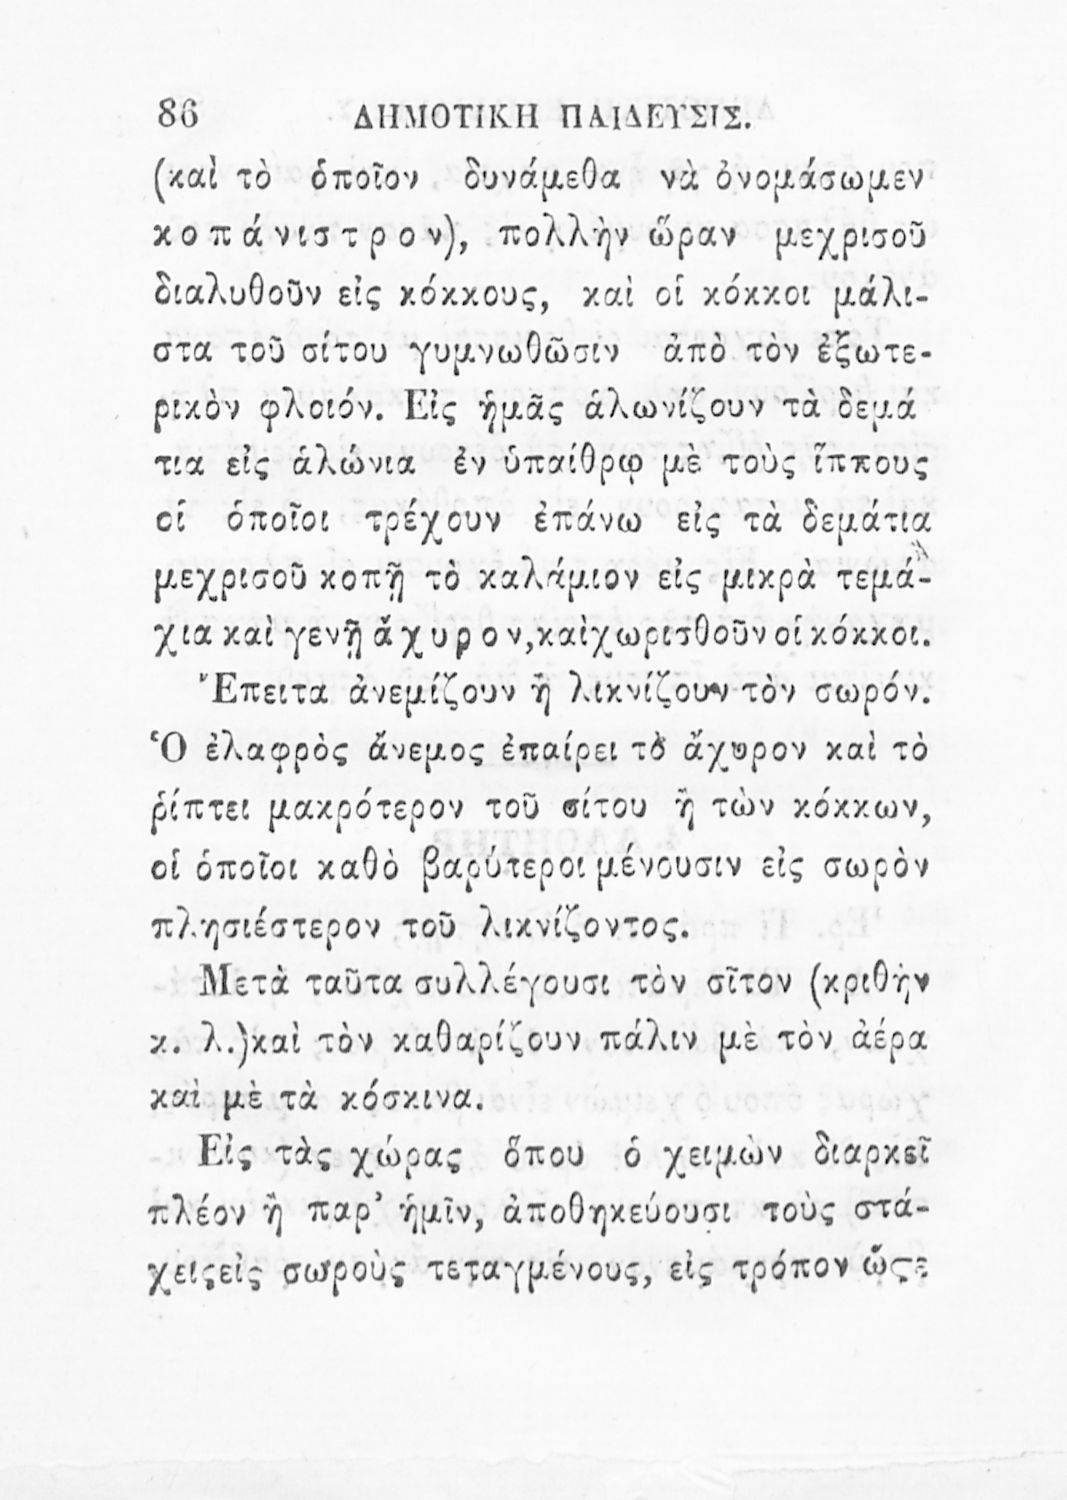 86 ΔΗΜΟΤΙΚΗ ΠΑΙΔΕΥΣΙΣ.
(καὶ τὸ ὁποῖον δυνάμεθα νὰ ὀνομάσωμεν
κοπάνιστρον), πολλὴν ὥραν μεχρισοῦ
διαλυθοῦν εἰς κόκκους, καὶ οἱ κόκκοι μάλι-
στα τοῦ σίτου γυμνωθῶσιν ἀπὸ τὸν ἐξωτε-
ρικὸν φλοιόν. Εἰς ἡμᾶς ἁλωνίζουν τὰ δεμά
τια εἰς ἁλώνια ἐν ὑπαίθρῳ μὲ τοὺς ἵππους
οἱ ὁποῖοι τρέχουν ἐπάνω εἰς τὰ δεμάτια
μεχρισοῦ κοπῇ τὸ καλάμιον εἰς μικρὰ τεμά-
χια καὶ γενῇ ἄχυρον,καὶχωρισθοῦν οἱ κόκκοι.
Ἔπειτα ἀνεμίζουν ἢ λικνίζουν τὸν σωρόν.
Ὁ ἐλαφρὸς ἄνεμος ἐπαίρει τὸ ἄχυρον καὶ τὸ
ῥίπτει μακρότερον τοῦ σίτου ἢ τῶν κόκκων,
οἱ ὁποῖοι καθὸ βαρύτεροι μένουσιν εἰς σωρὸν
πλησιέστερον τοῦ λικνίζοντος.
Μετὰ ταῦτα συλλέγουσι τὸν σῖτον (κριθὴν
κ. λ.)καὶ τὸν καθαρίζουν πάλιν μὲ τὸν ἀέρα
καὶ μὲ τὰ κόσκινα.
Εἰς τὰς χώρας ὅπου ὁ χειμὼν διαρκεῖ
πλέον ἢ παρ᾽ ἡμῖν, ἀποθηκεύουσι τοὺς στά-
χειςεἰς σωροὺς τεταγμένους, εἰς τρόπον ὥϛε